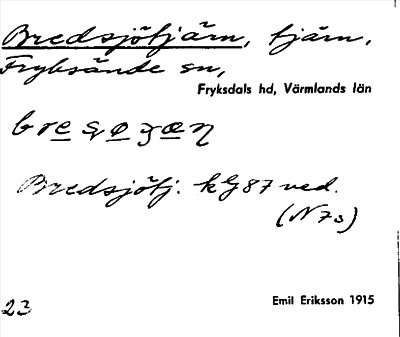 Bredsjötjärn, tjärn,
Fryksände sn,
Fryksdals hd, Värmlands län
Bredsjötj. kG 87 ved.
(N 73)
23
Emil Eriksson 1915